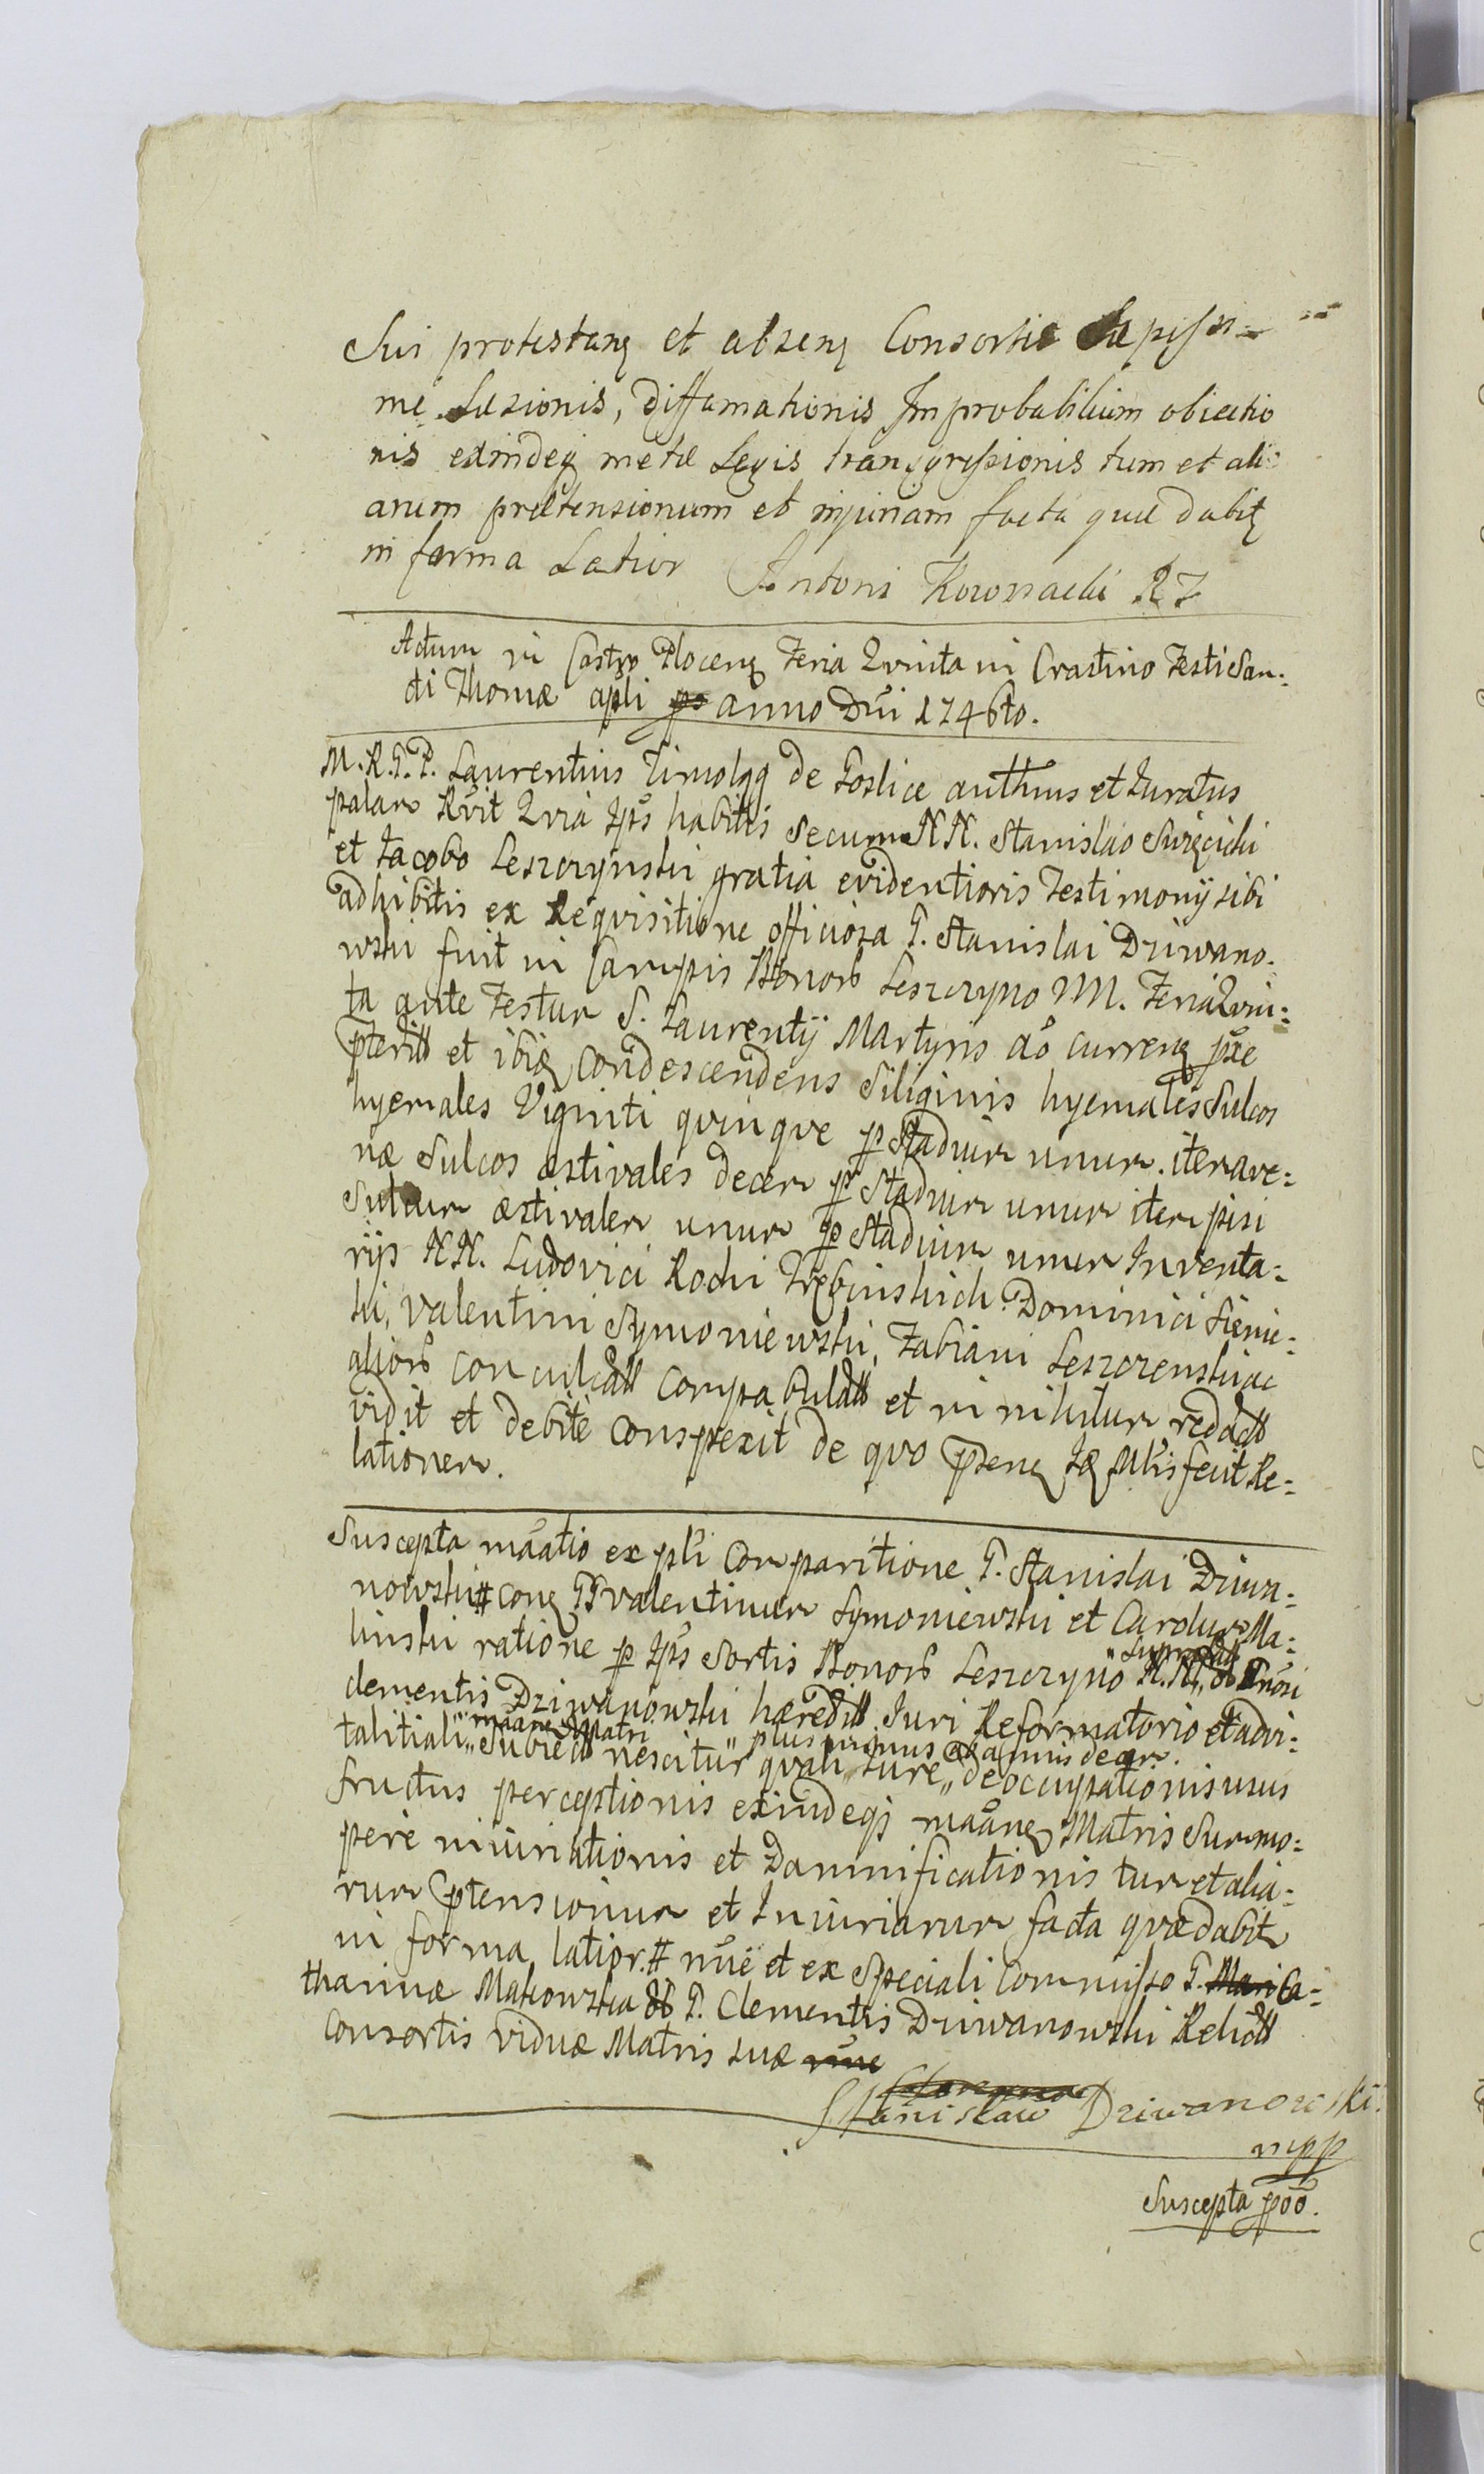 Sui protestanȝ et absenȝ Consortis Sæpissi-
mè Læzionis, Diffamationis Improbabilium obiectio
nis exindeqȝ metæ Legis transgressionis tum et ali-
arum prætensionum et injuriam facta quæ dabitȝ
in forma Latior Antoni Kownacki RZ
Actum in Castro Plocenȝ Feria Quinta in Crastino Festi San:
cti Thomæ apli anno Dni 1746to.
M. R. G. P. Laurentius de Goslice authus et Iuratus
palam Rvit Quia Ips habitis secum NN. Stanislao Swięcicki
et Iacobo Leszczynski gratia evidentioris Testimonij sibi
adhibitis ex Requisitione officiosa G. Stanislai Dziwano-
wski fuit in Campis Bonorb Leszczyno M. Feria Quin:
ta ante Festum S. Laurentij Martyris ao currenȝ pxe
pteritt et ibiqȝ condescendens Siliginis hyemales Sulcos
hyemales Viginti quinque p Stadium unum. item ave:
næ Sulcos æstivales decem p Stadium unum item pisi
Sulcum æstivalem unum p Stadium unum Inventa:
rijs NN. Ludovici Rochi Trębinskich Dominici Sienic:
ki, Valentini Symoniewski, Fabiani Leszczenski ac
aliorb conculcatt compabulatt et in nihilum redactt
vidit et debitè conspexit de quo pdenȝ fecit Re:
lationem.
Suscepta maatio ex pli Comparitione G. Stanislai Dziwa:
nowski # conȝ GG Valentinum Symoniewski et Carolum Ma:
linski ratione p Ips Sortis Bonorb Leszczyno N. N.
Clementis Dziwanowski hæreditt Iuri Reformatorio et advi:
maanȝ Matri
talitiali „ Subiectt nescitur „ quali Iure „ deoccupationis usus
fructus perceptionis exindeqȝ maanȝ Matris Summo:
perè iniuriationis et Damnificationis tum et alia:
rum ptensionum et Iniuriarum facta quæ dabitȝ
in forma latior. # nue et ex Speciali Commisso G. Mari Ca:
tharinæ Makowska G. Clementis Dziwanowski Relictt
Consortis viduæ Matris suæ
Stanislaw Dziwanowski
mpp
Suscepta poo.